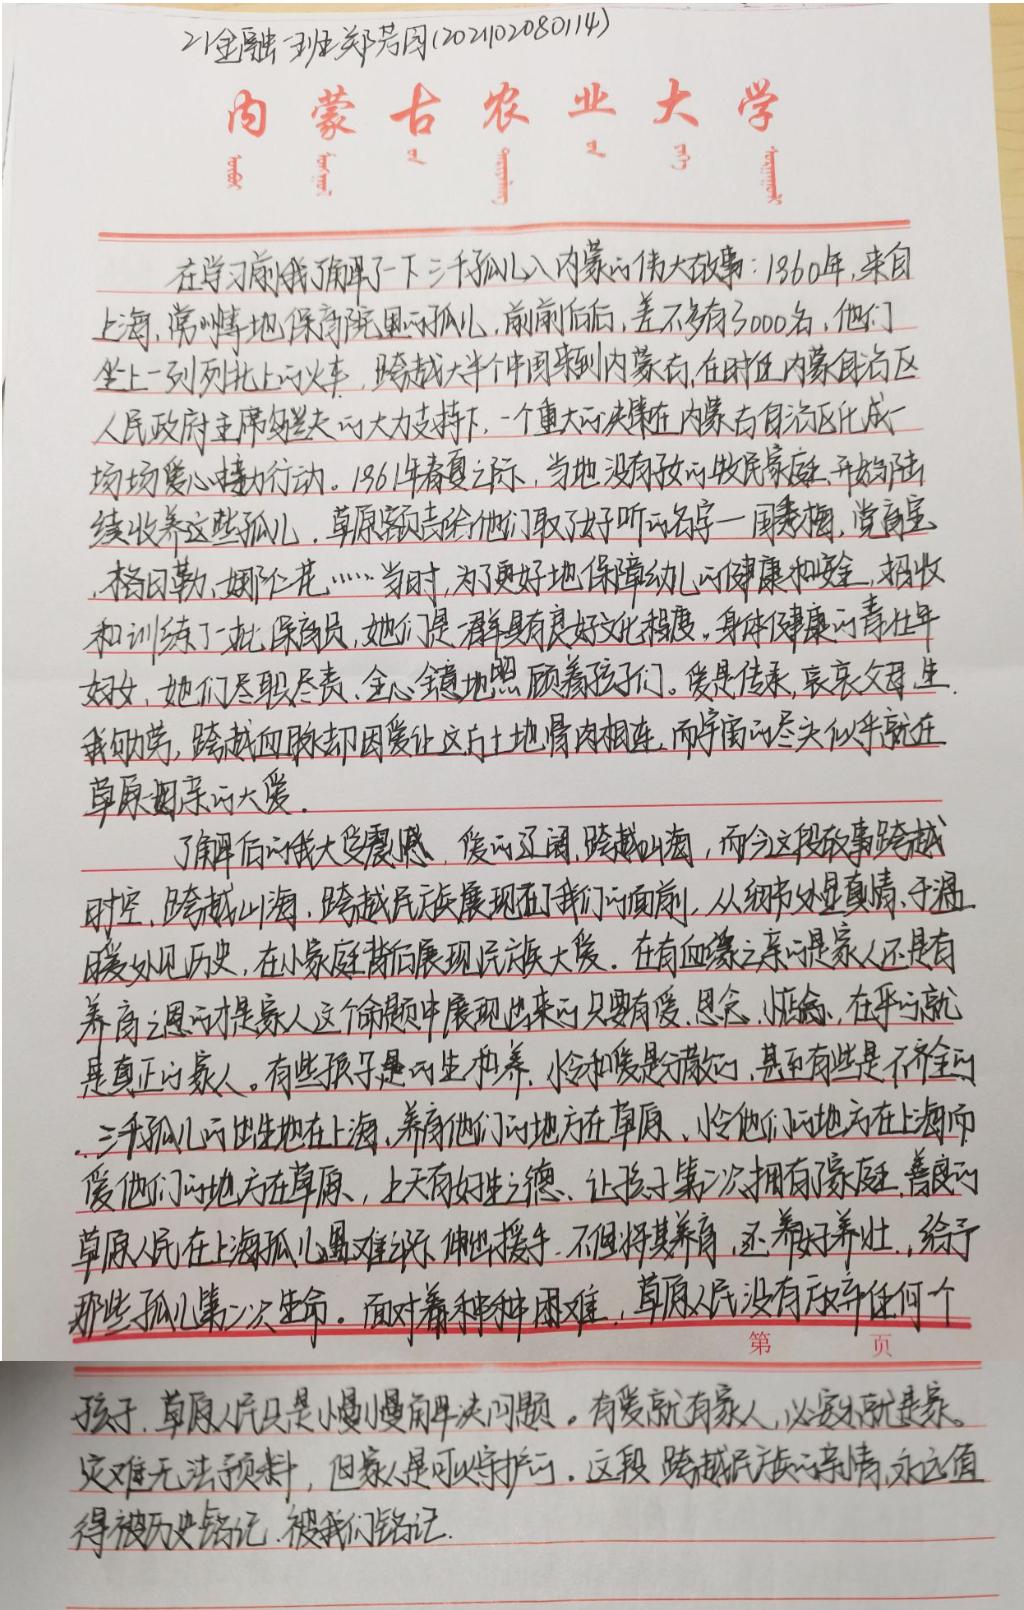 21金融一班郑芳园(202102080114)
内蒙古农业大学
在学习前我了解了一下三千孤儿入内蒙的伟大故事：1960年，来自
上海、常州等地保育院里的孤儿，前前后后，差不多有3000名，他们
坐上一列列北上的火车，跨越大半个中国来到内蒙古，在时任内蒙自治区
人民政府主席乌兰夫的大力支持下，一个重大的决策在内蒙古自治区化成一
场场爱心接力行动。1961年春夏之际，当地没有子女的牧民家庭开始陆
续收养这些孤儿，草原额吉给他们取了好听的名字一国秀梅，党育宝
，格日勒，娜仁花……当时，为了更好地保障幼儿的健康和安全，招收
和训练了一批保育员，她们是一群具有良好文化程度。身体健康的青壮年
妇女，她们尽职尽责、全心全意地照顾着孩子们。爱是传承，哀哀父母，生
我劬劳，跨越血脉却因爱让这方土地骨肉相连，而宇宙的尽头似乎就在
草原母亲的大爱.
了解后的我大受震撼，爱的辽阔，跨越山海，而今这段故事跨越
时空、跨越山海、跨越民族展现在了我们的面前，从细节处显真情、于温
暖处见历史，在小家庭背后展现民族大爱。在有血缘之亲的是家人还是有
养育之恩的才是家人这个命题中展现出来的只要有爱、思念、惦念，在乎的就
是真正的家人。有些孩子是的生和养、怜和爱是分散的，甚至有些是不齐全的
，三千孤儿的出生地在上海、养育他们的地方在草原、怜他们的地方在上海而
爱他们的地方在草原，上天有好生之德、让孩子第二次拥有了家庭，善良的
草原人民在上海孤儿遇难之际伸出援手，不但将其养育，还养好养壮，给予
那些孤儿第二次生命。面对着种种困难，草原人民没有放弃任何个
第 页
孩子，草原人民只是慢慢解决问题。有爱就有家人，心安处就是家。
灾难无法预料，但家人是可以守护的。这段跨越民族的亲情，永远值
得被历史铭记、被我们铭记.